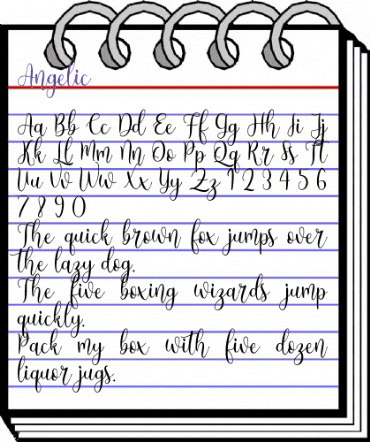 Angelic
Aa Bb Cc Dd Ee Ff Gg Hh Ii Jj
Kk Ll Mm Nn Oo Pp Qq Rr Ss Tt
Uu Vv Ww Xx Yy Zz 1 2 3 4 5 6
7 8 9 0
The quick brown fox jumps over
the lazy dog.
The five boxing wizards jump
quickly.
Pack my box with five dozen
liquor jugs.